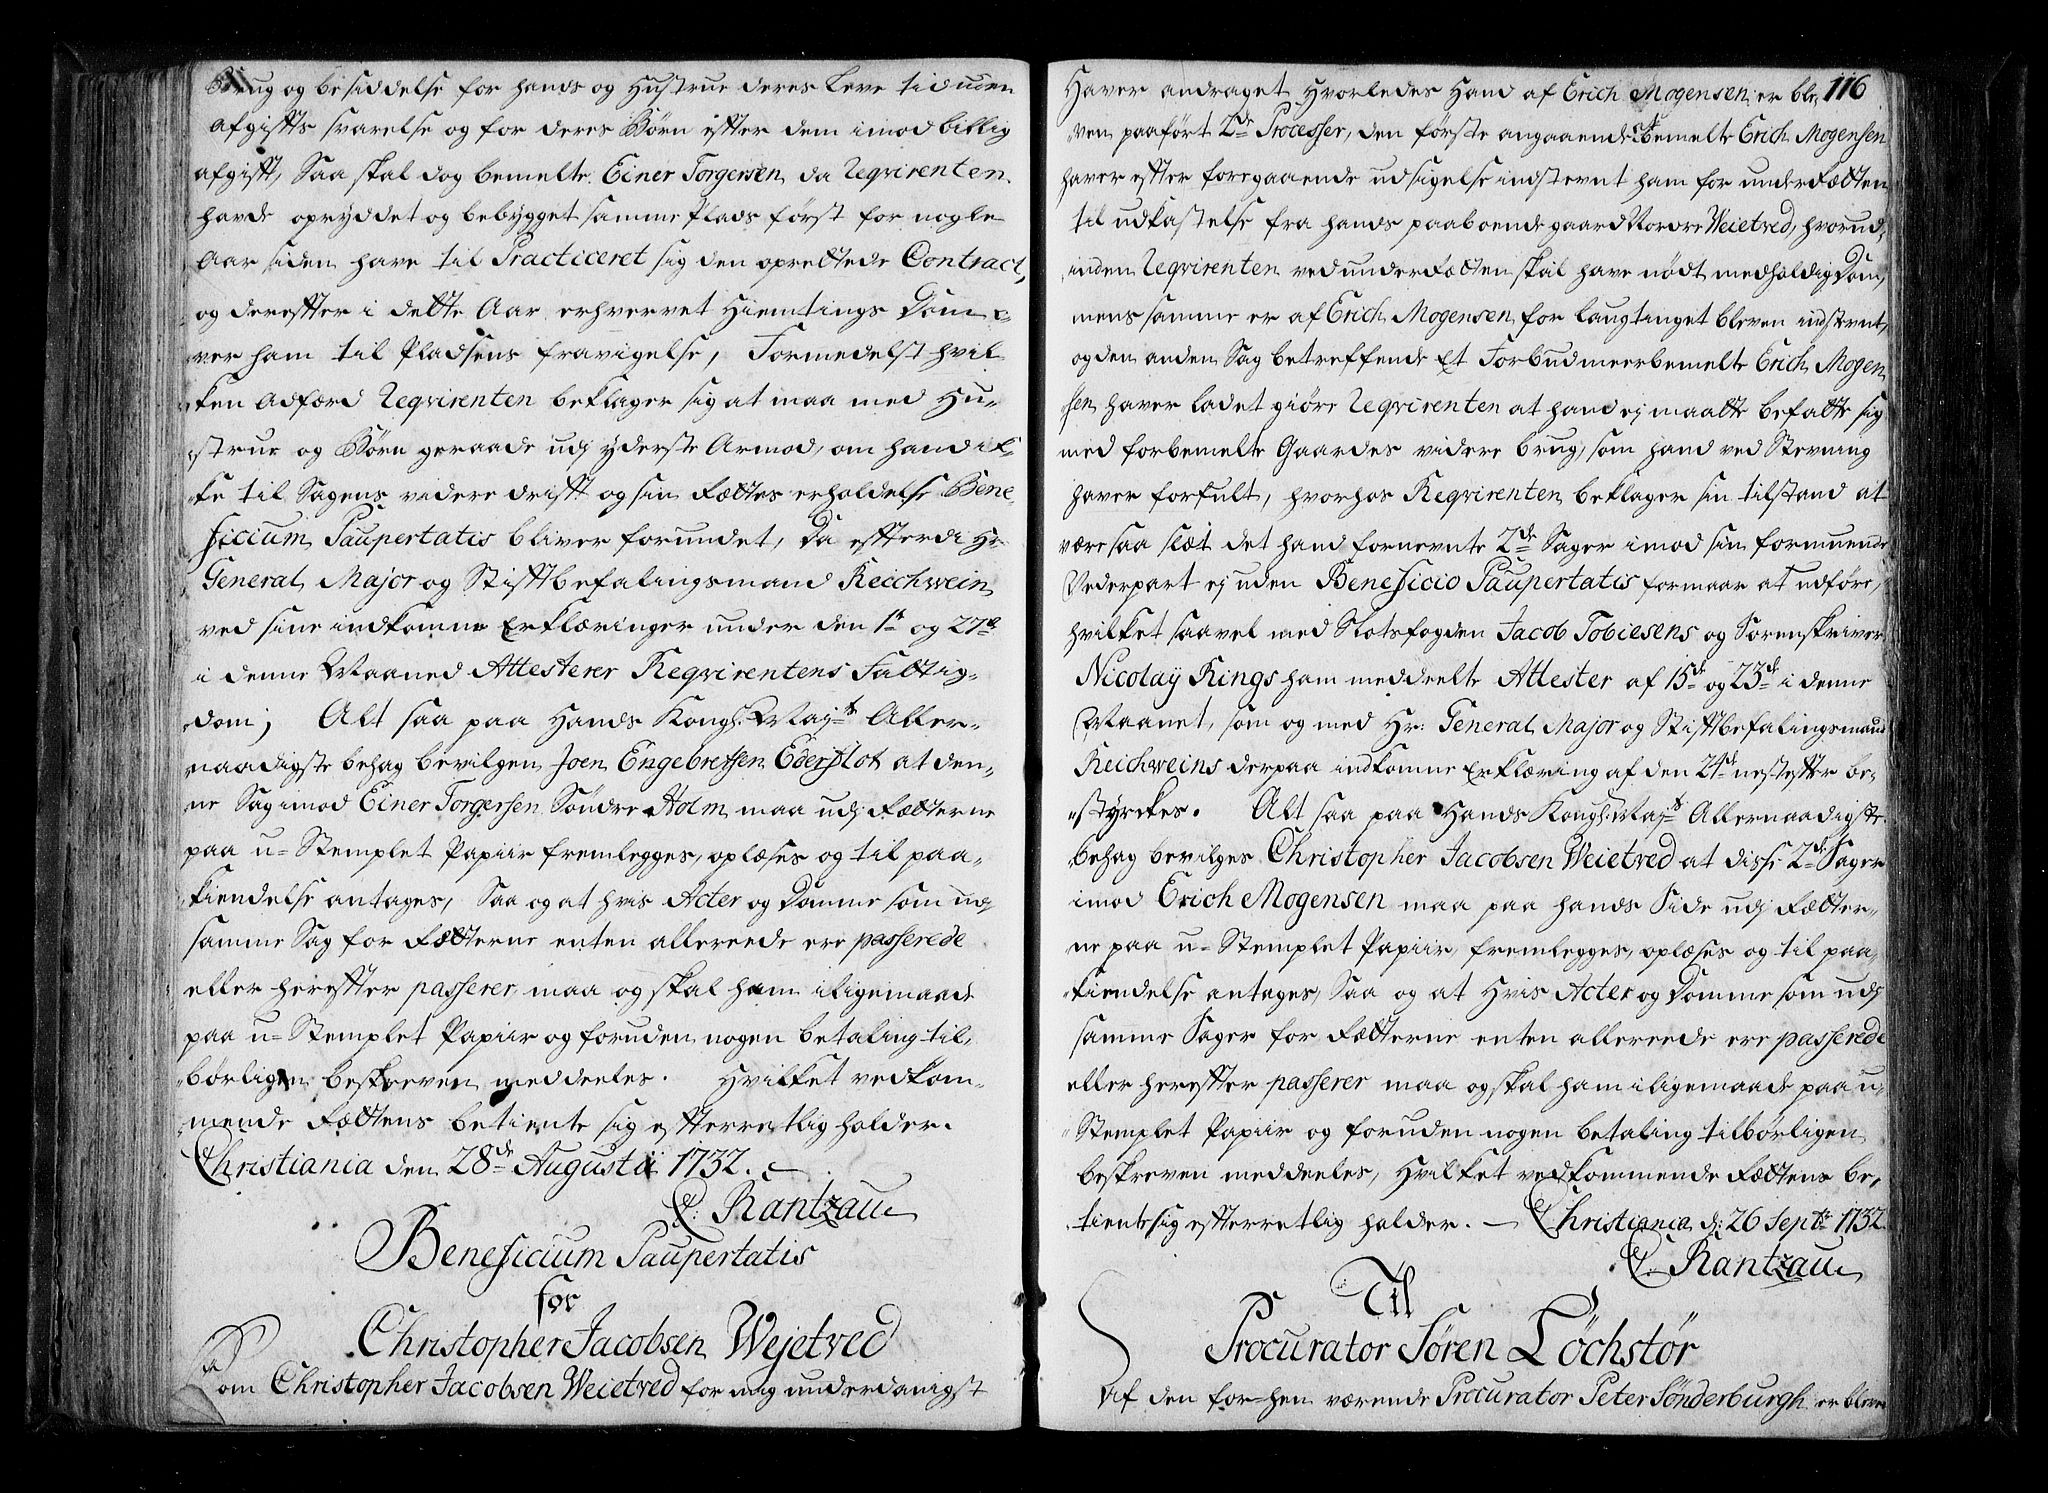 Brug og besiddelse for hands og Hustrue deres Leve tid uden
afgiffts svarelse og for deres Børn effter dem imod billig
afgifft, Saa skal dog bemelte Einer Torgersen, da Reqvirenten
havde opryddet og bebygget samme Plads først for nogle
Aar siden have til Practiceret sig den oprettede Contract,
og dereffter i dette Aar erhvervet Hiemtings Dom o-
ver ham til Pladsens fravigelse, Formedelst hvil
ken Adfærd Reqvirenten beklager sig at maa med Hu-
strue og Børn geraade udj yderste Armod, om hand ik-
ke til Sagens videre drifft og sin Rettes erholdelse Bene-
ficium Paupertatis bliver forundet, Da effterdi Hr
General Major og Stifftbefalingsmand Reichwein
ved sine indkomne Erklæringer under den 1te og 27de
i denne Maaned Attesterer Reqvirentens Fattig-
dom; Alt saa paa Hands Kongl. Mayts Aller-
naadigste behag bevilgen Joen Engebretsen Ederslot at den-
ne Sag imod Einer Torgersen Søndre Holm maa udj Retterne
paa u-Stemplet Papiir fremlegges, oplæses og til paa-
kiendelse antages, Saa og at hvis Acter og Domme som udj
samme Sag for Retterne enten allereede ere passerede
eller hereffter passerer, maa og skal ham iligemaade
paa u-Stemplet Papiir og foruden nogen betaling til-
børligen beskreven meddeeles. Hvilket vedkom-
mende Rettens betiente sig effterretlig holder.
Christiania den 28de Augusti 1732.
C: Rantzau
Beneficium Paupertatis
for
Christopher Jacobsen Wejetved
Som Christopher Jacobsen Weietved for mig underdanigst
116
Haver andraget Hvorledes Hand af Erich Mogensen er ble-
ven paaført 2de Processer, den første angaaende bemelte Erich Mogensen
haver effter foregaaende udsigelse indstevnt ham for underRetten
til udkastelse fra hands paaboende gaard Nordre Weietved, hvorud-
inden Reqvirenten ved underRetten skal have nødt medholdig Dom,
mens samme er af Erich Mogensen for Laugtinget bleven indstevnt,
og den anden Sag betreffende Et Forbud meerbemelte Erich Mogen
sen haver ladet giøre Reqvirenten at hand ej maatte befatte sig
med forbemelte Gaardes videre brug, som hand ved Stevning
haver forfult, hvorhos Reqvirenten beklager sin tilstand at
være saa slæt det hand fornevnte 2de Sager imod sin formuende
Vederpart ej uden Beneficio Paupertatis formaar at udføre,
hvilket saavel med Slotsfogden Jacob Tobiesens og Sorenskriver
Nicolaÿ Rings ham meddeelte Attester af 15de og 23de i denne
Maanet, som og med Hr: General Major og Stifftbefalingsmand
Reichweins derpaa indkomne Erklæring af den 24de nesteffter be-
styrckes. Alt saa paa Hands Kongl. Mayts Allernaadigste
behag bevilges Christopher Jacobsen Weietved at disse 2de Sager
imod Erich Mogensen maa paa hands Side udj Retter-
ne paa u-Stemplet Papiir fremlegges, oplæses og til paa-
kiendelse antages, Saa og at Hvis Acter og Domme som udj
samme Sager for Retterne enten allereede ere passerede
eller hereffter passerer maa og skal ham iligemaade paa u-
Stemplet Papiir og foruden nogen betaling tilbørligen
beskreven meddeeles, Hvilket vedkommende Rettens be-
tiente sig effterretlig holder. Christiania d: 26 Septr 1732
C: Rantzau
Til
Procurator Søren Löchstör
Af den for-hen værende Procurator Peter Sönderburgh er bleven